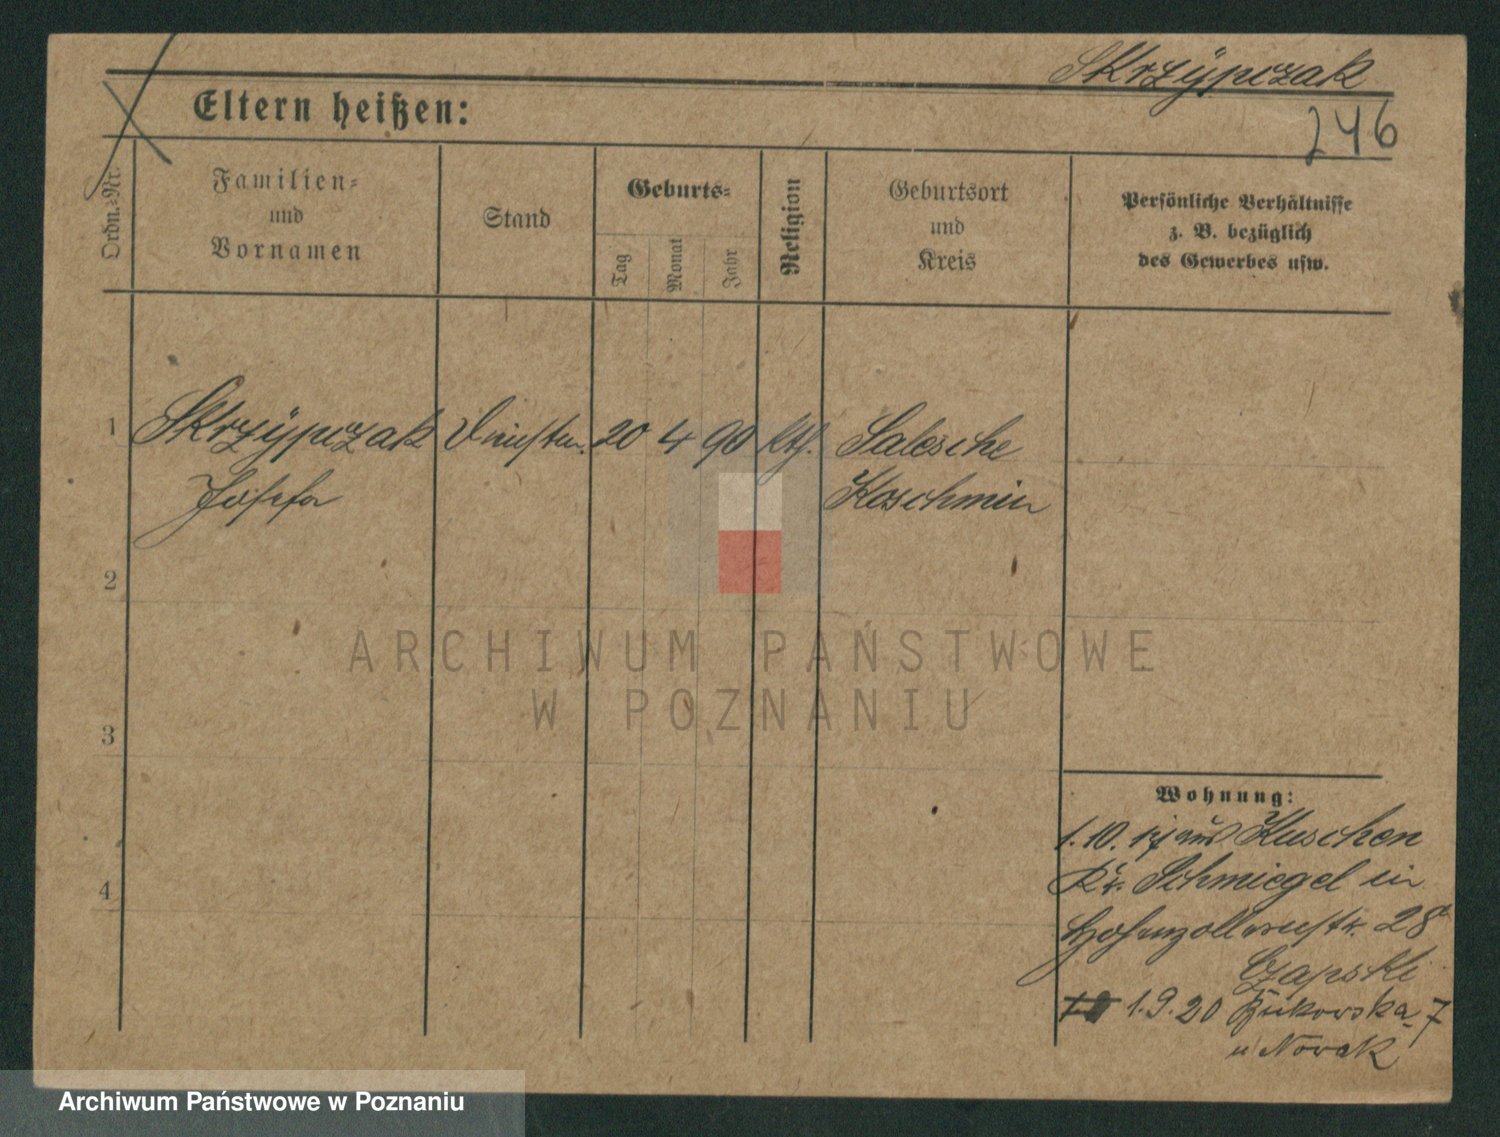 Skrzÿpczak
246
Eltern heißen:
Ordn.-Nr.
Familien-
und
Vornamen
Stand
Geburts-
Tag
Monat
Jahr
Religion
Geburtsort
und
Kreis
Persönliche Verhältnisse
z. B. bezüglich
des Gewerbes usw.
1 Skrzÿpczak 20 4 90 kth. Salesche
Josefa Koschmin
2
ARCHIWUM PAŃSTWOWE
W POZNANIU
3
Wohnung:
1.10. aus Kuschen
Kr. Schmiegel in
4
Hohenzollernstr. 28
Czapski
1.9.20 Bukowska 7
Nowak
Archiwum Państwowe w Poznaniu